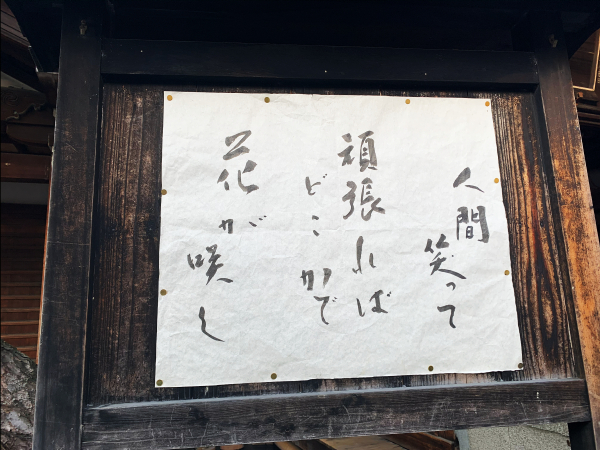 人間
笑って
頑張れば
どこかで
花が
咲く